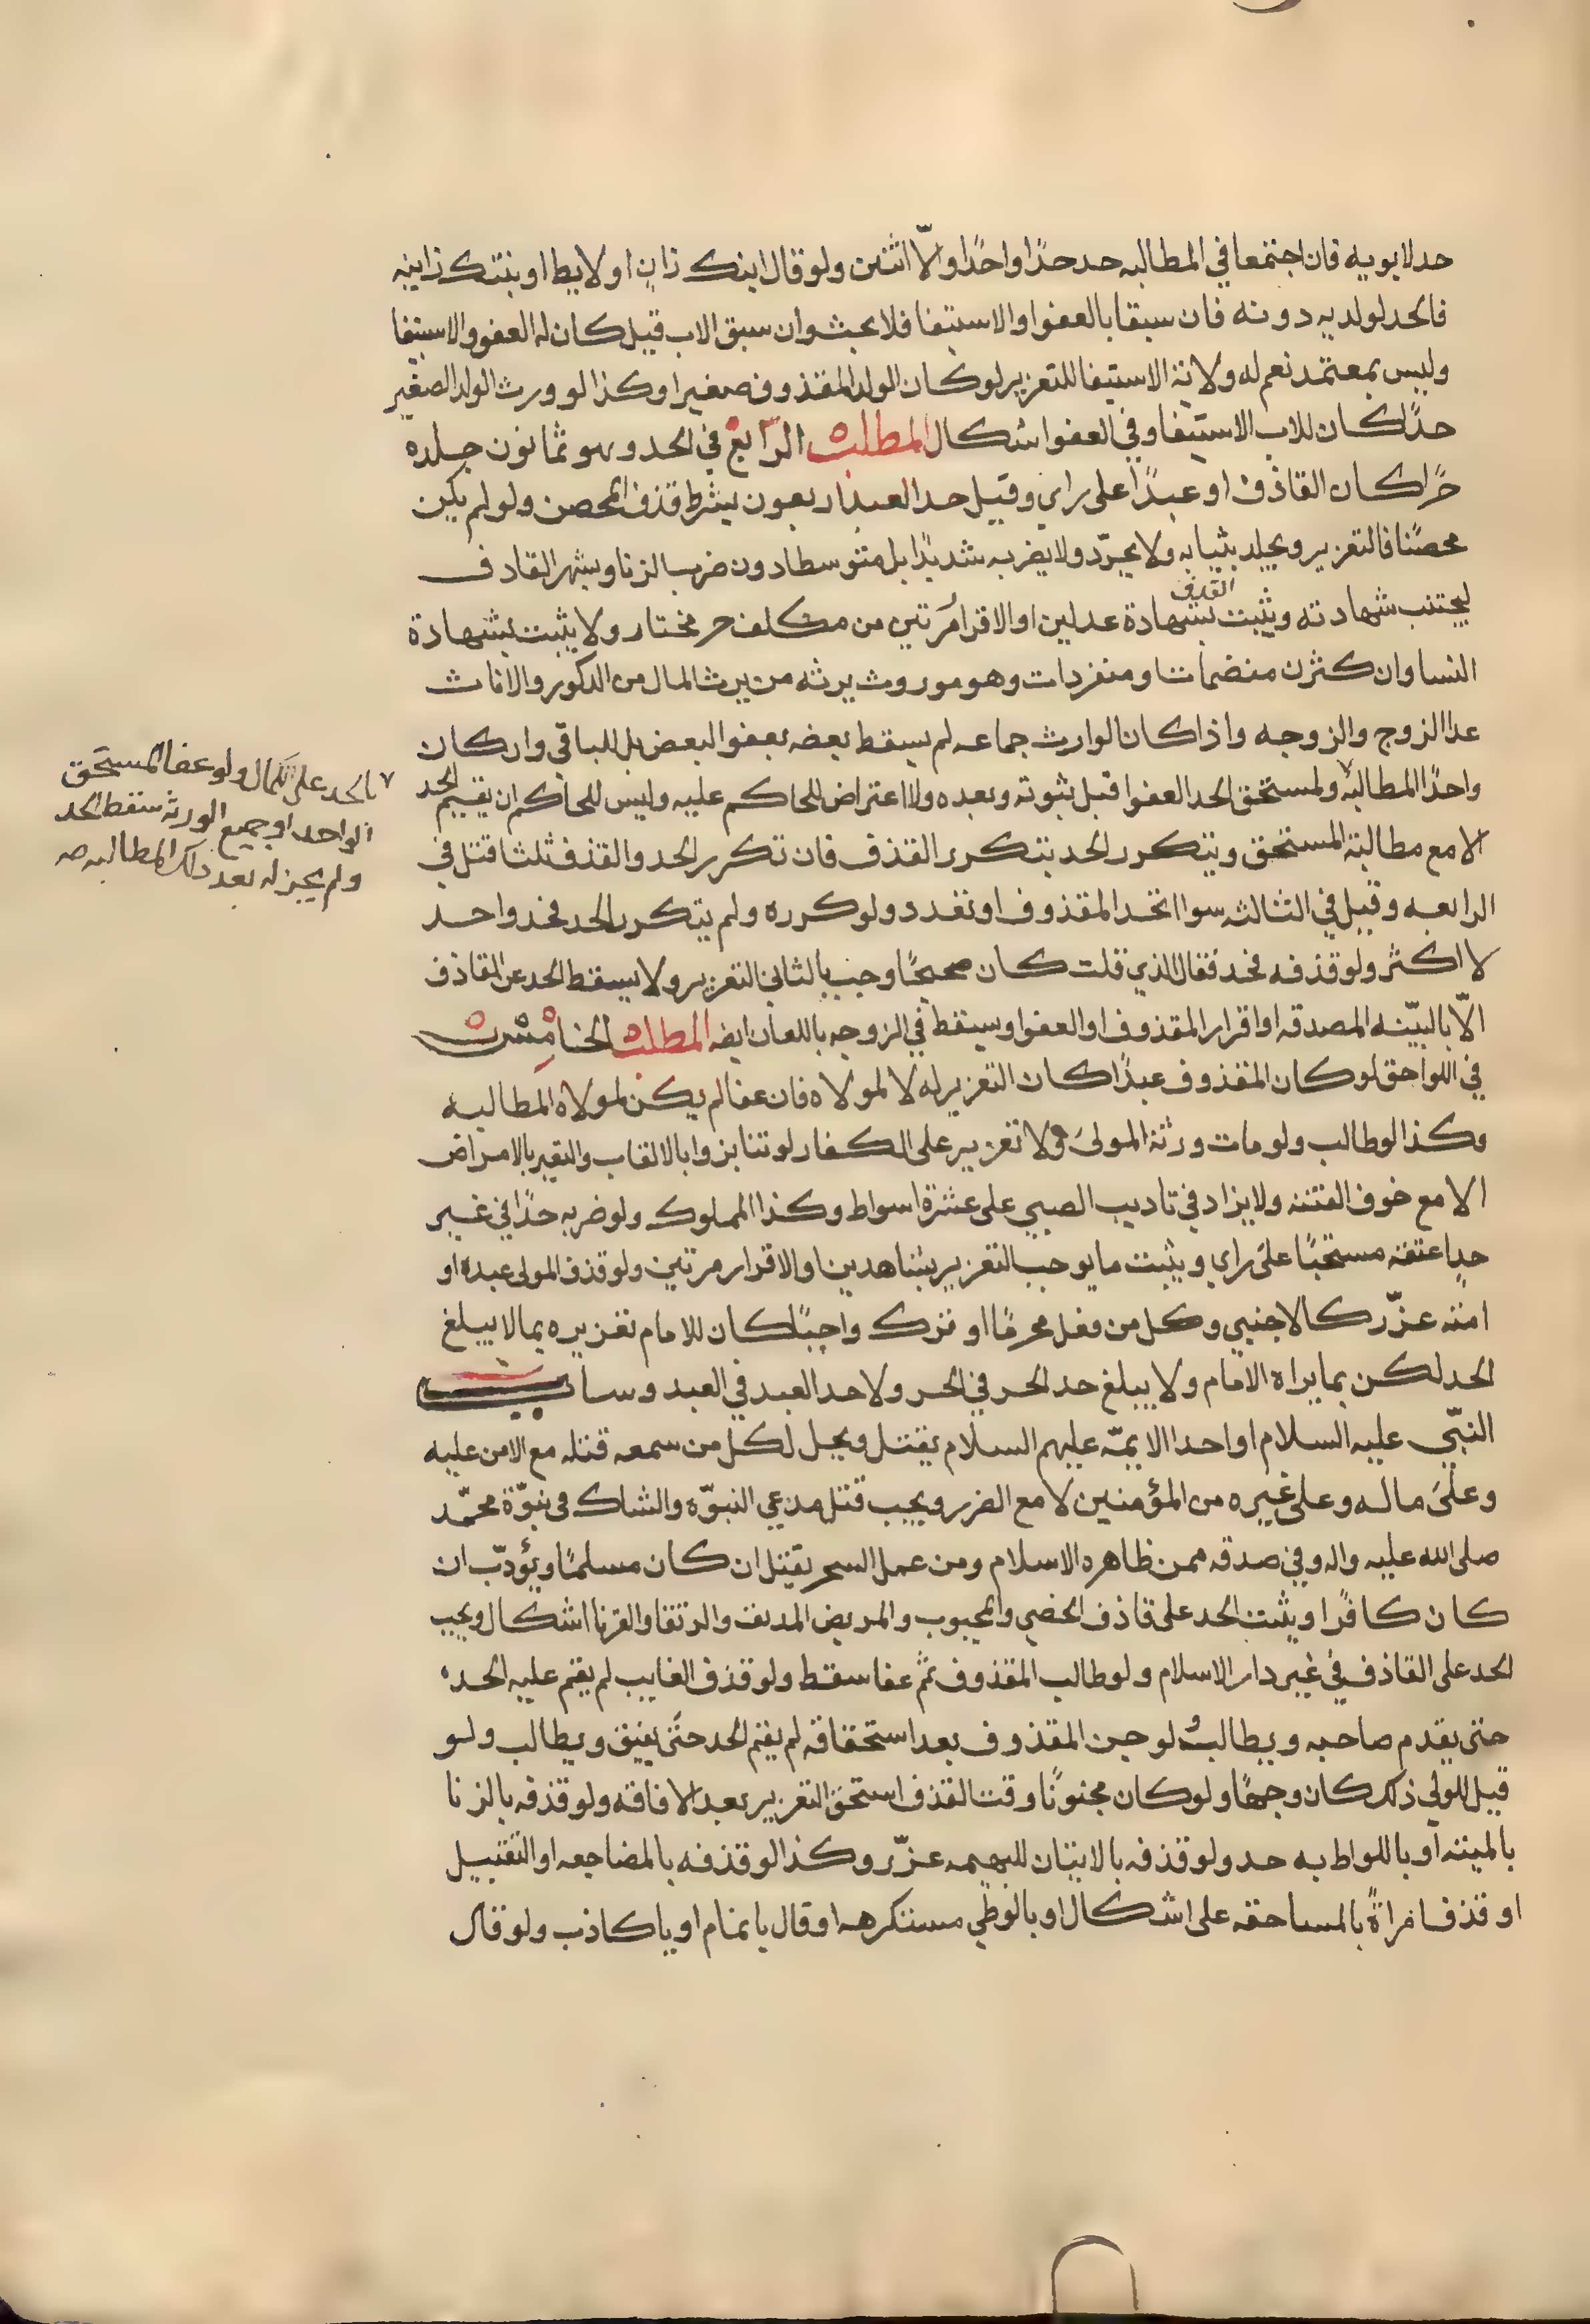 حد لابويه فان اجتمعا في المطالبه حد حدًا واحدًا والّا اثنين ولو قال ابنك زانٍ او لايط او بنتك زانيه
فالحد لولديه دونه فان سبقا بالعفو او الاستيفا فلا بحث وان سبق الاب قيل كان له العفو والاستيفا
وليس بمعتمد نعم له ولاية الاستيفا للتعزير لو كان الولد المقذوف صغيرا وكذا لو ورث الولد الصغير
حدًا كان للاب الاستيفا وفي العفو اشكال المطلب الرابع في الحد وهو ثمانون جلده
حرًا كان القاذف او عبدًا على راي وقيل حد العبد اربعون بشرط قذف المحصن ولو لم يكن
محصنًا فالتعزير ويجلد بثيابه ولا يجرّد ولا يضرب شديدًا بل متوسطا دون ضرب الزنا ويشهر القاذف
ليجتنب شهادته ويثبت القذف بشهادة عدلين او الاقرار مرتين من مكلف حر مختار ولا يثبت بشهادة
النسا وان كثرن منضمات او منفردات وهو موروث يرثه من يرث المال من الذكور والاناث
عدا الزوج والزوجه واذا كان الوارث جماعه لم يسقط بعضه بعفو البعض بل للباقي وان كان
واحدًا المطالبه ولمستحق الحد العفو قبل ثبوته وبعده ولا اعتراض للحاكم عليه وليس للحاكم ان يقيم الحد
الا مع مطالبة المستحق ويتكرر الحد بتكرر القذف فان تكرر الحد والقذف ثلثا قتل في
الرابعه وقيل في الثالثه سوا اتحد المقذوف او تعدد ولو كرره ولم يتكرر الحد فحد واحد
لا اكثر ولو قذفه فحد فقال الذي قلت كان صحيحًا وجب بالثاني التعزير ولا يسقط الحد عن القاذف
الّا بالبيّنه المصدقه او اقرار المقذوف او العفو او سيقط في الزوجه باللعان ايضه المطلب الخامس
في اللواحق لو كان المقذوف عبدًا كان التعزير له لا لمولاه فان عفا لم يكن لمولاه المطالبه
وكذا لو طالب ولو مات ورثة المولى ولا تعزير على الكفار لو تنابزوا بالالقاب والتعير بالامراض
الا مع خوف الفتنه ولا يزاد في تاديب الصبي على عشرة اسواط وكذا المملوك ولو ضربه حدًا في غير
حدٍ اعتقه مستحبًا على راي ويثبت ما يوجب التعزير بشاهدين او الاقرار مرتين ولو قذف المولى عبده او
امته عزّر كالاجنبي وكل من فعل محرمًا او ترك واجبًا كان للامام تعزيره بما لا يبلغ
الحد لكن بما يراه الامام ولا يبلغ حد الحر في الحر ولا حد العبد في العبد وساب
النبّي عليه السلام او احد الايمّه عليهم السلام يقتل ويحل لكل من سمعه قتله مع الامن عليه
وعلى ماله وعلى غيره من المؤمنين لا مع الضرر ويجب قتل مدعي النبوّه والشاك في نبوّة محمّد
صلى الله عليه واله وفي صدقه ممن ظاهره الاسلام ومن عمل السحر يقتل ان كان مسلمًا ويؤدّب ان
كان كافرًا ويثبت الحد على قاذف الخصي والمجبوب والمريض المدنف والرتقا والقرنا اشكال ويجب
الحد على القاذف في غير دار الاسلام ولو طالب المقذوف ثم عفا سقط ولو قذف الغايب لم يقم عليه الحد
حتى يقدم صاحبه ويطالب ولو جن المقذوف بعد استحقاقه لم يقم الحد حتى يفيق ويطالب ولو
قيل للولي ذلك كان وجهًا ولو كان مجنونًا وقت القذف استحق التعزير بعد الافاقه ولو قذفه بالزنا
بالميته او باللواط به حد ولو قذفه بالاتيان للبهيمه عزّر وكذا لو قذفه بالمضاجعه او التقبيل
او قذف امراةً بالمساحقه على اشكال او بالوطي مستكرهه او قال يا نمام او يا كاذب ولو قال
الحد على الكمال ولو عفا المستحق
الواحد او جميع الورثه سقط الحد
ولم يجز له بعد ذلك المطالبه صه